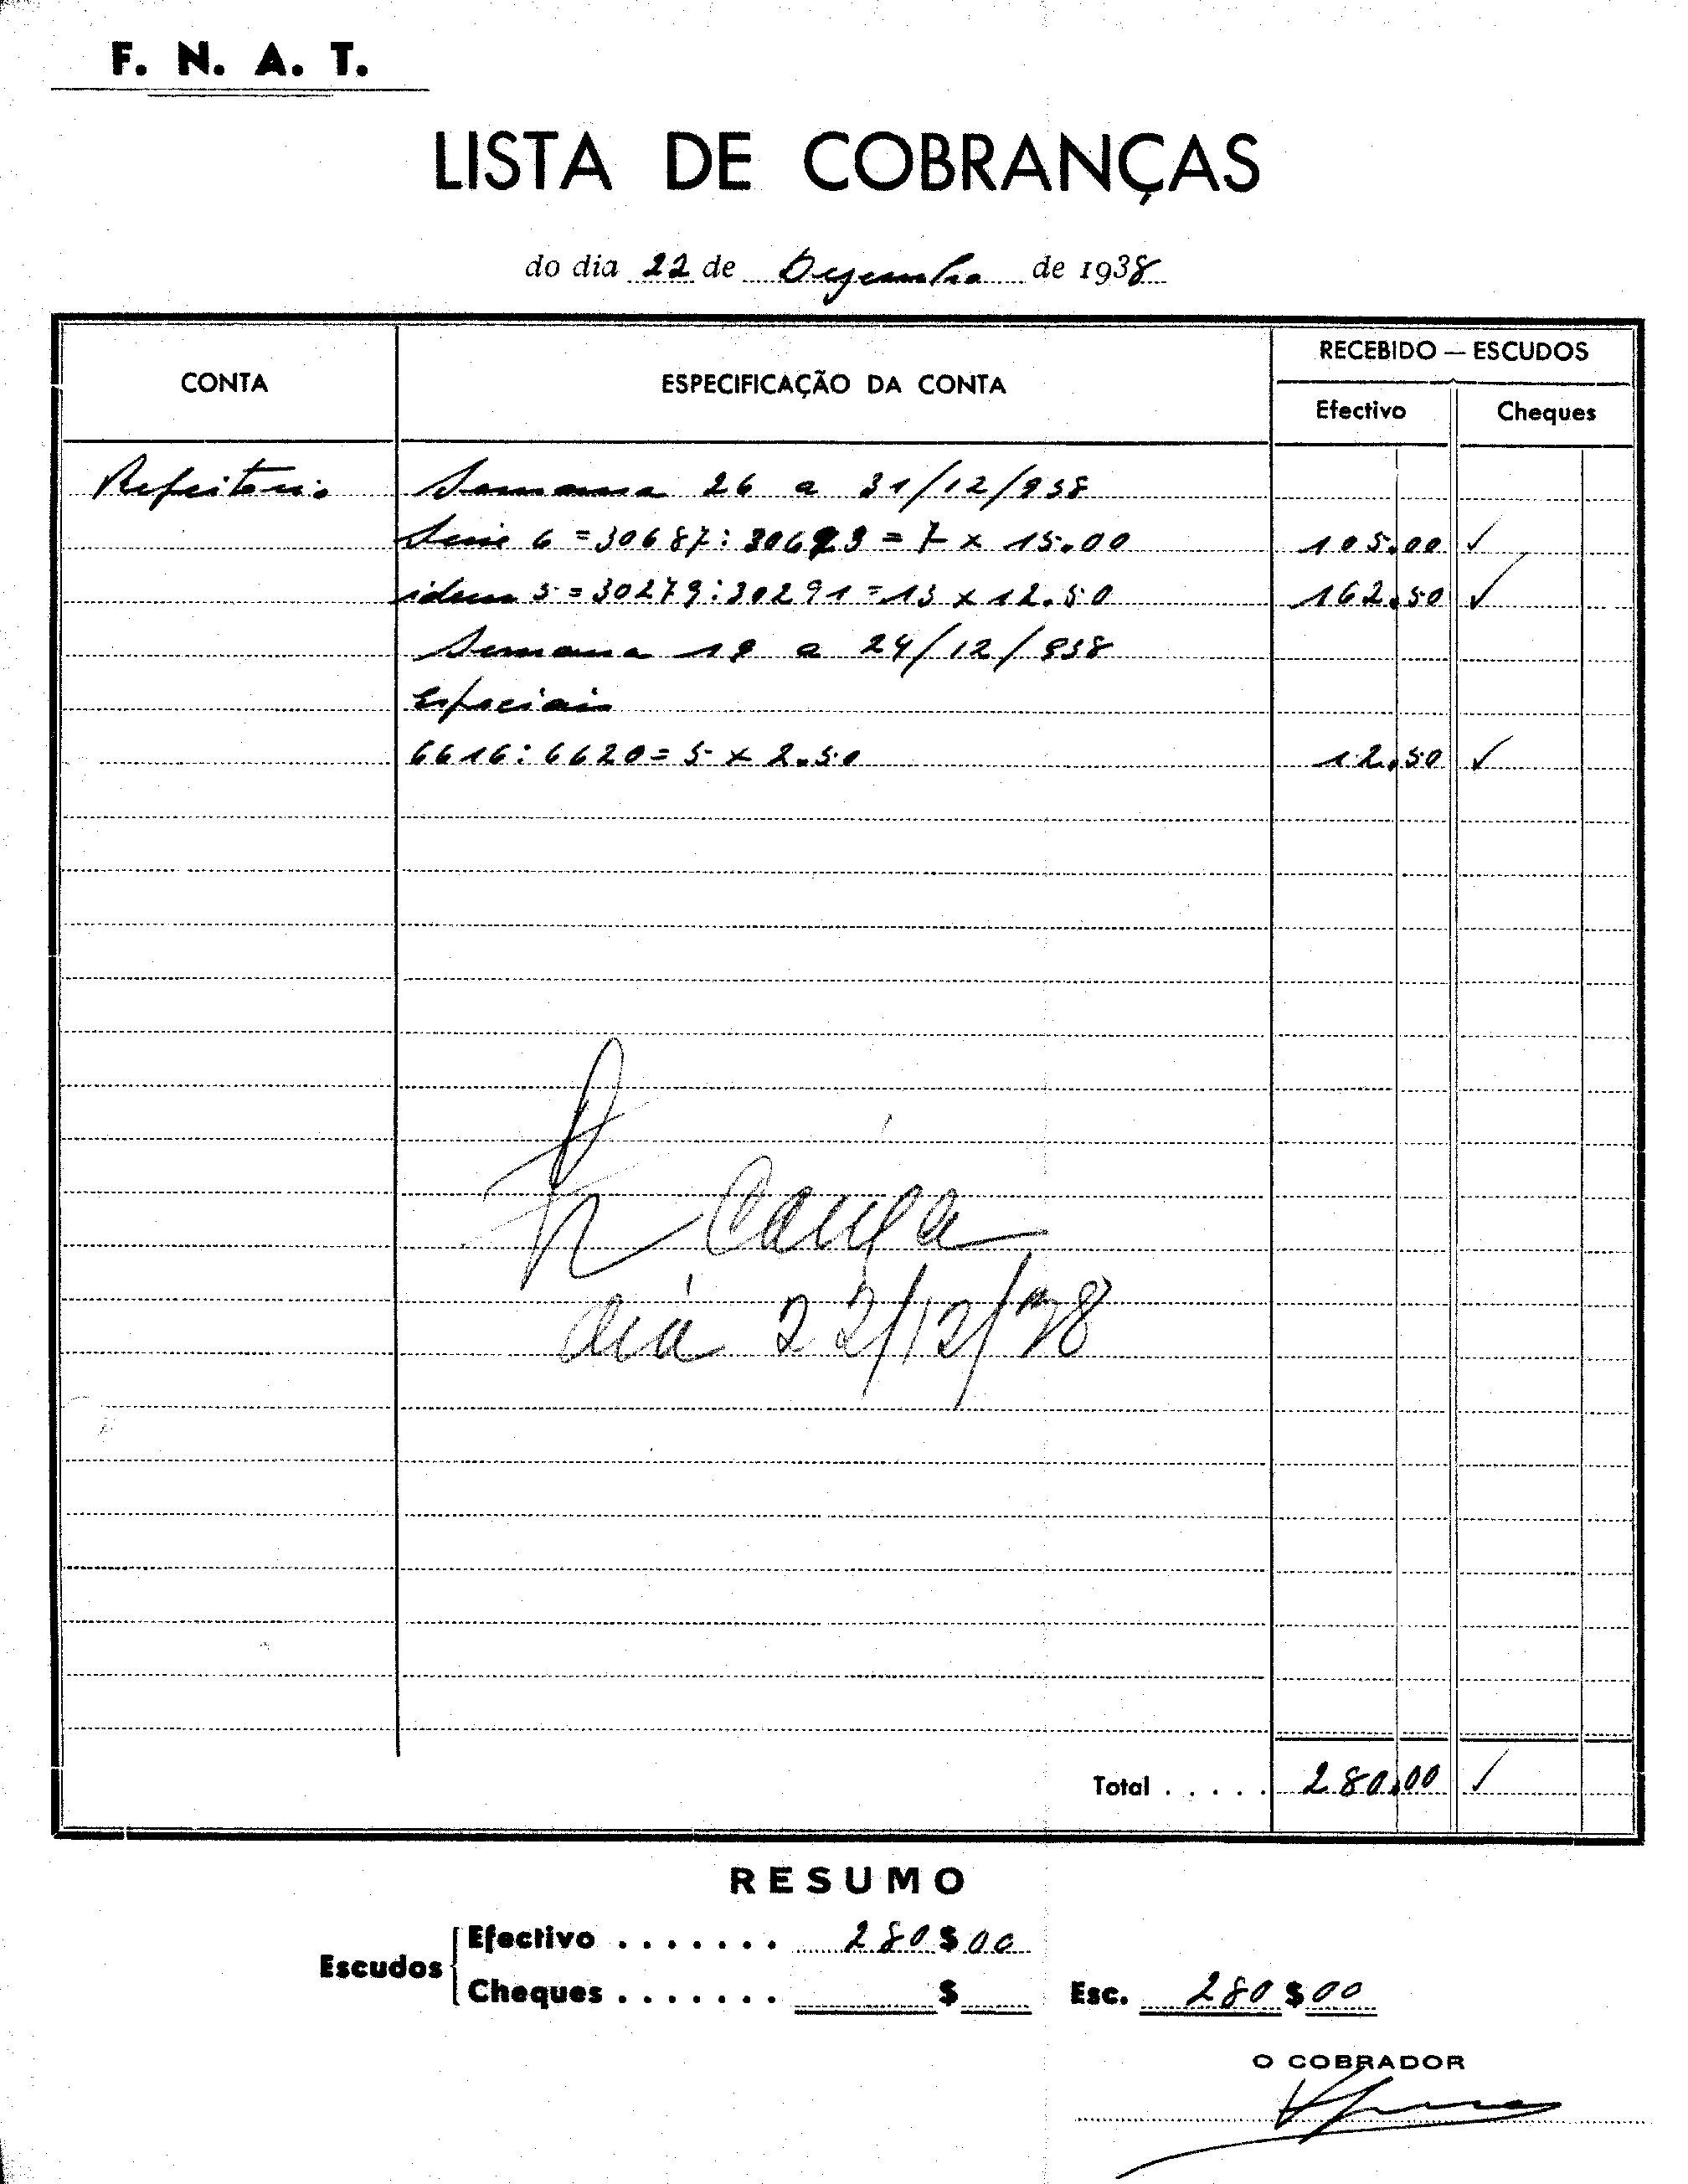 F. N. A. T.
LISTA DE COBRANÇAS
do dia 22 de Dezembro de 1938
CONTA
ESPECIFICAÇÃO DA CONTA
RECEBIDO — ESCUDOS
Efectivo
Cheques
Refeitorio Semana 26 a 31/12/938
Serie 6 = 30687: 30693 = 7 x 15.00 105.00 ✓
idem 5 = 30279:30291 = 13 x 12.50 162.50 ✓
Semana 19 a 24/12/938
Especiais
6616: 6620 = 5 x 2.50 12.50 ✓
Caixa
dia 22/12/38
Total . . . . . 280.00 ✓
RESUMO
Escudos
Efectivo . . . . . . . 280$00
Cheques . . . . . . . $
Esc. 280$00
O COBRADOR